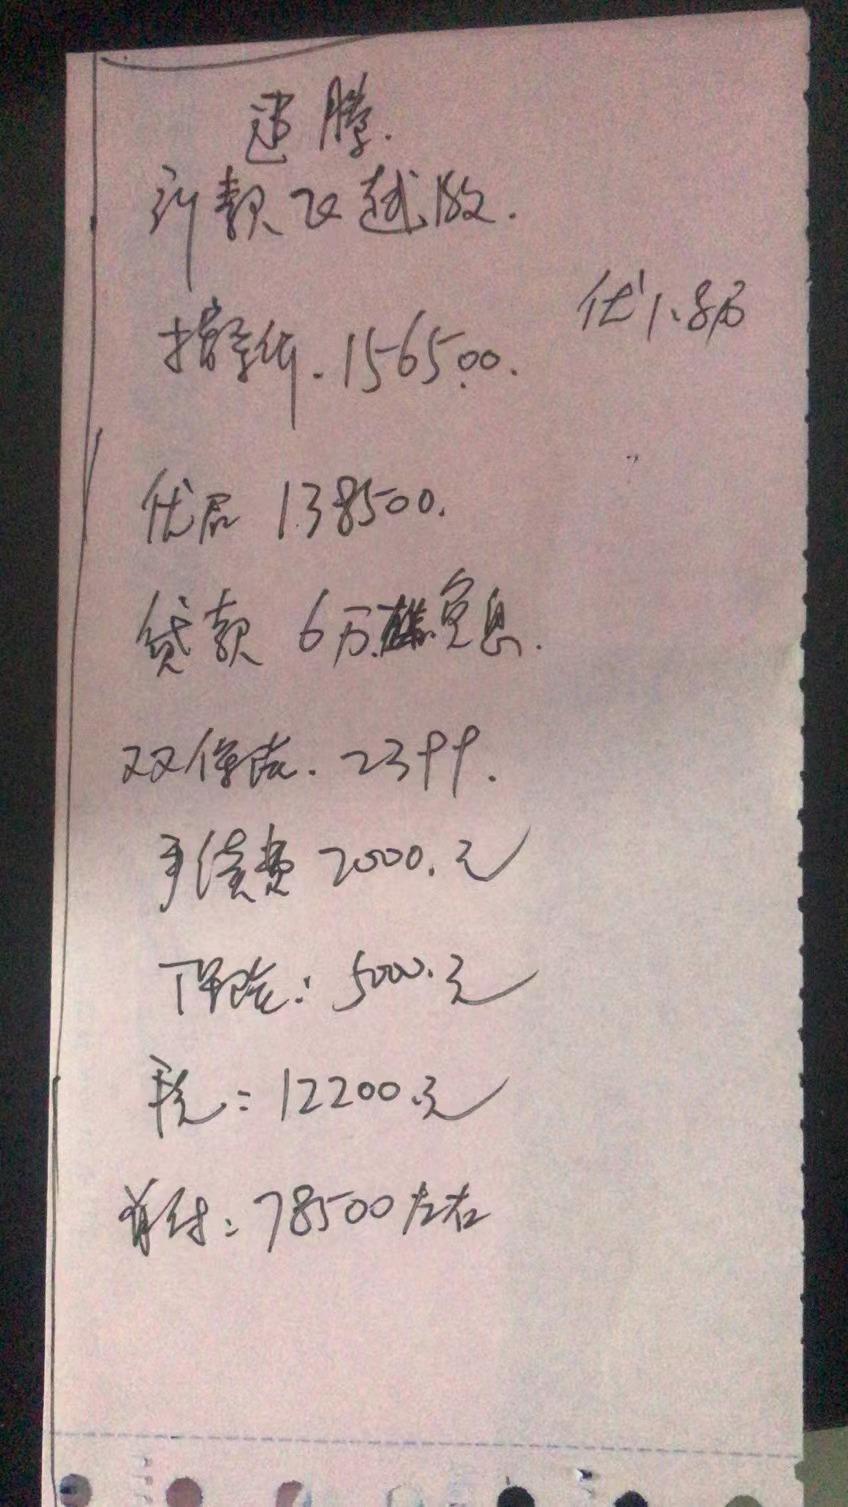 速腾.
新款飞越版.
优1.8万
指导价.156500.
优后 138500.
贷款 6万 免息.
双保险.2399.
手续费 2000.元
保险: 5000.元
税: 12200元
首付: 78500左右